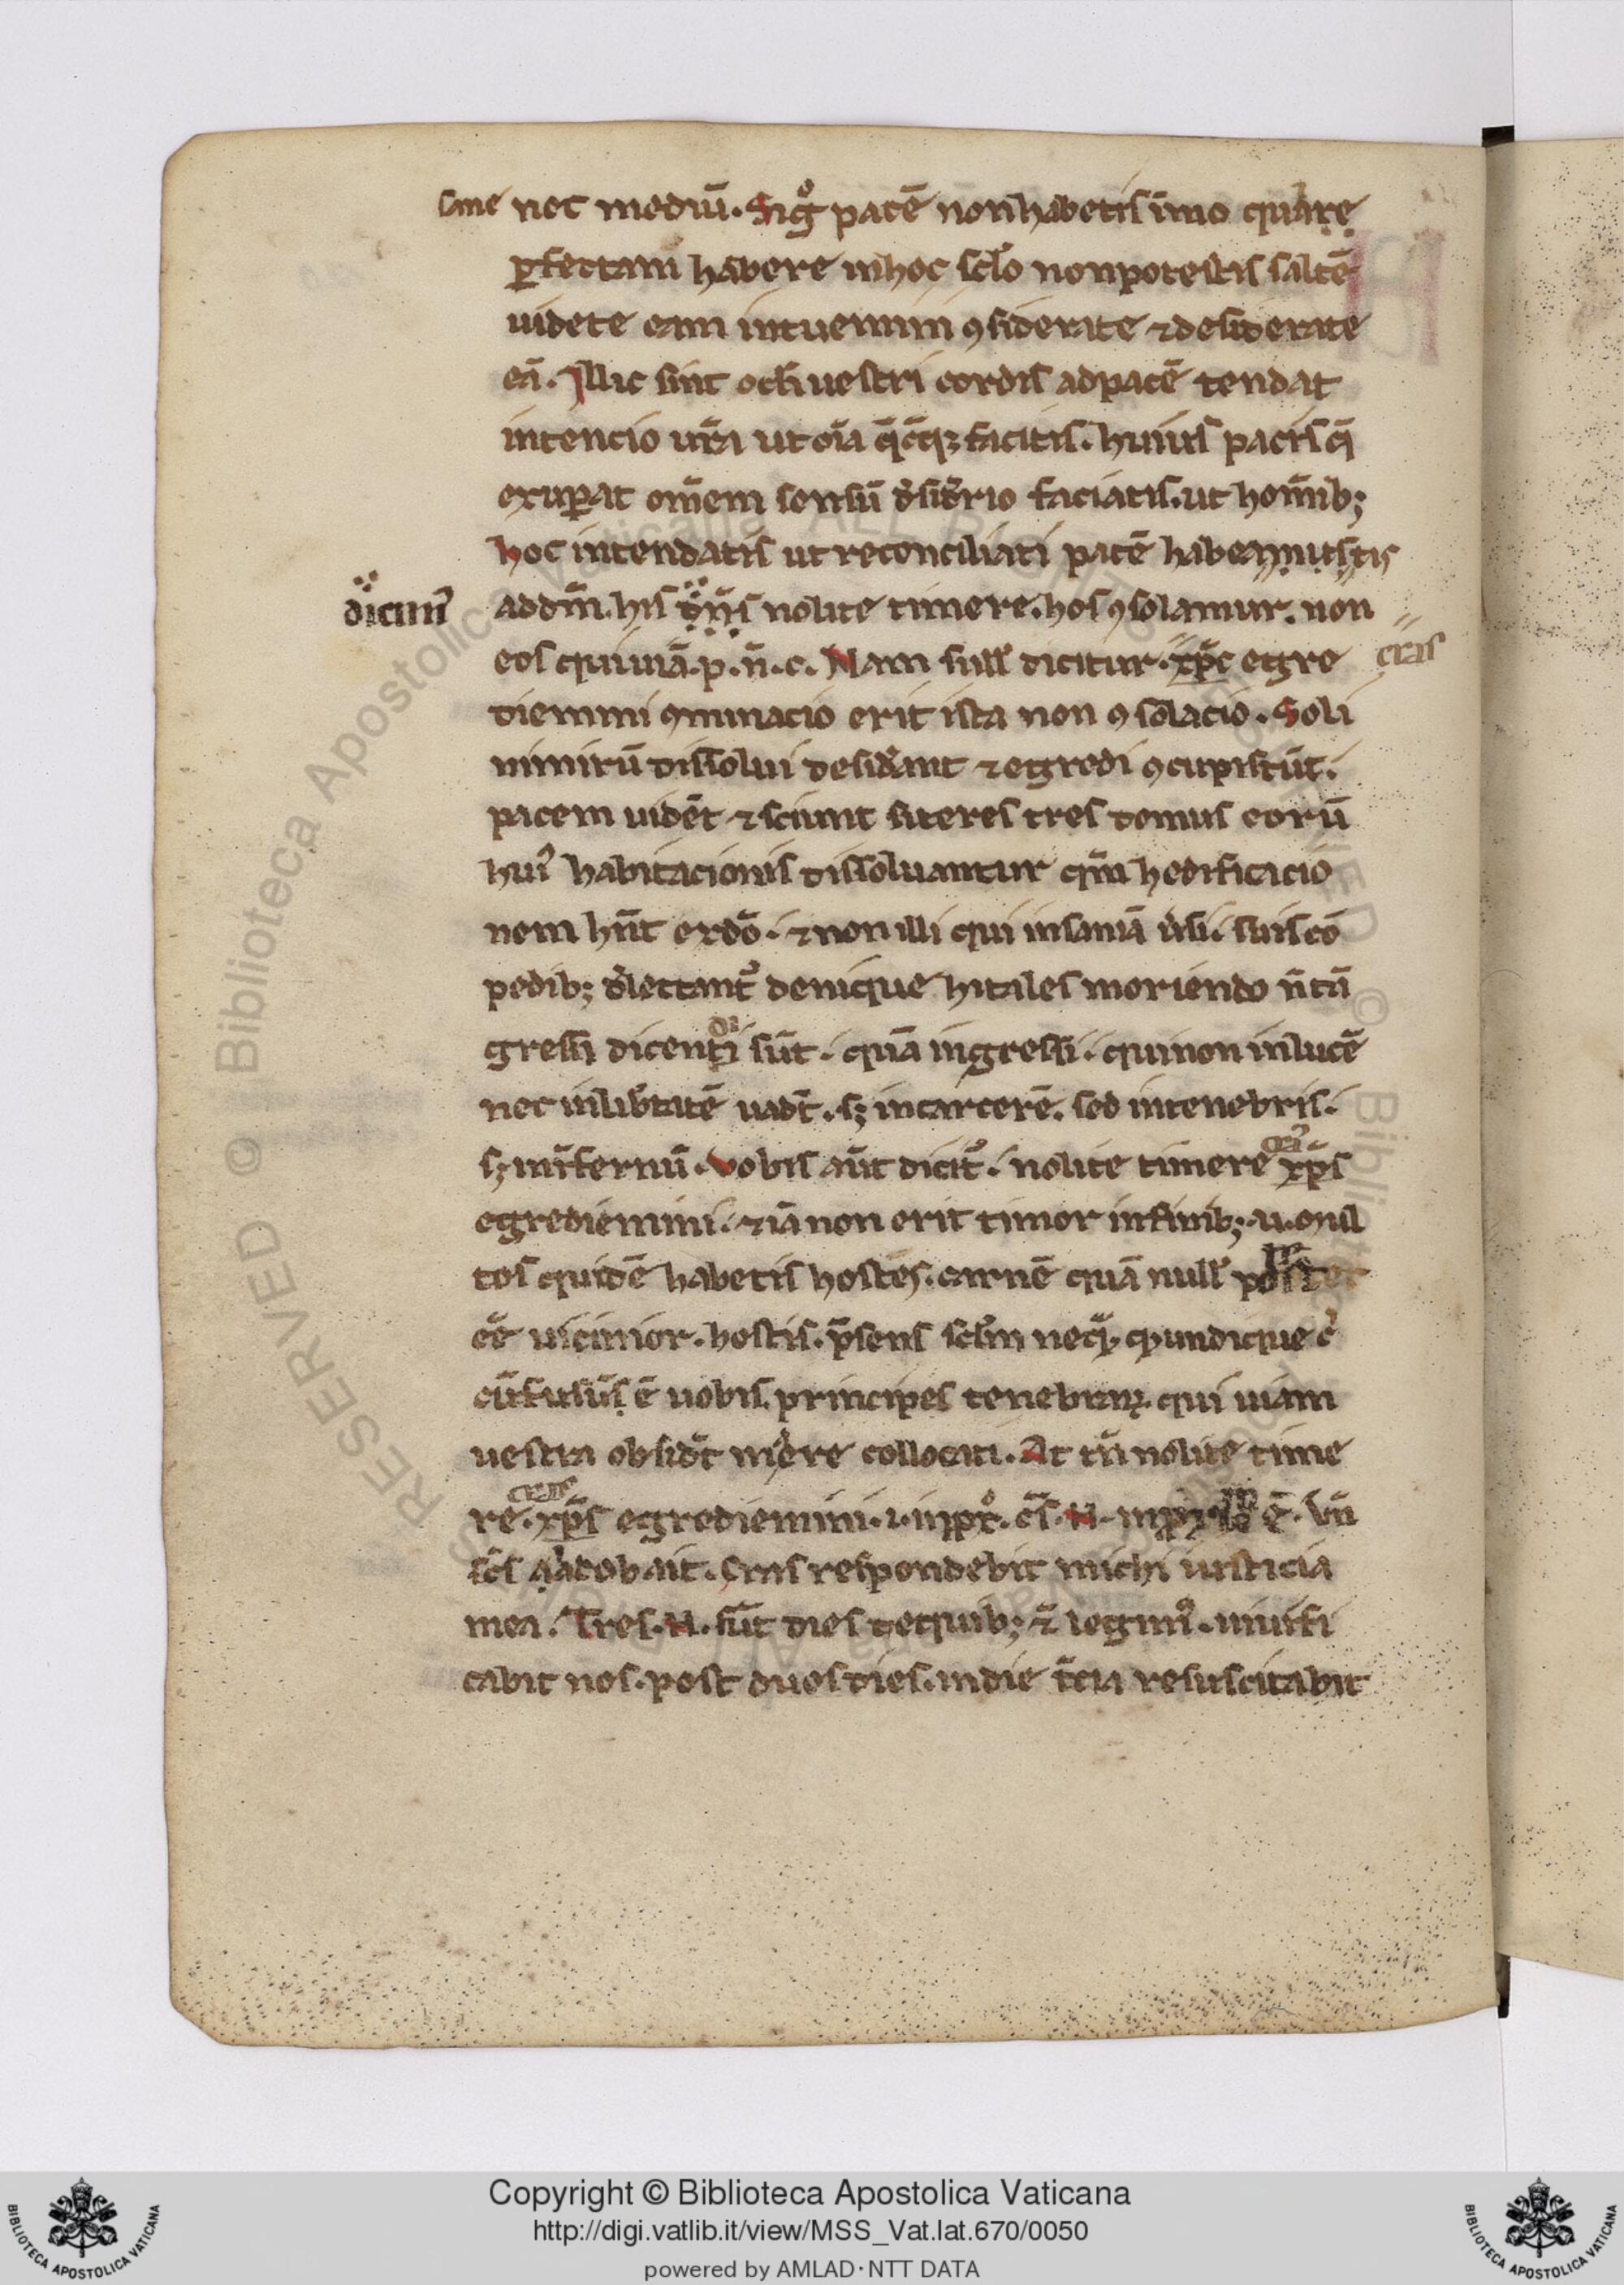 sane nec mediū. Si gͦ pacē non habetis īmo quare
ꝑfectam habere in hoc sclo non potestis saltē
uidete eam intuemini ꝯsiderate ⁊ desiderate
eā. Illic sint ocli uestri cordis ad pacē tendat
intencio ur̄a ut oīa q̄cq; facitis. huius pacis q̄
exuꝑat om̄em sensū desiderio faciatis. ut hom̄ib;
hoc intendatis ut reconciliati pacē habeamus tis
dicim᷒ ad dm̄. his nolite timere. hos ꝯsolamur. non
eos qui uiā. p. n̄. c. Nam si ill' dicitur. xp̄c egre cras
diemini ꝯminacio erit ista non ꝯsolacio. Soli
nimirū dissolui desiderant ⁊ egredi ꝯcupiscūt.
pacem uidēt ⁊ sciunt si teres tres domus eorū
hui᷒ habitacionis dissoluantur qm̄ hedificacio
nem hn̄t ex dō. ⁊ non illi qui insaniā ūsi. suis cō
pedib; delectant᷒ denique hi tales moriendo n̄ tā
gressi dicenti sūt. quā ingressi. qui non in lucē
nec in libertatē uadt̄. s; in carcerē. sed in tenebris.
s; in īfernū. Vobis aūt dicit᷒. nolite timere cra᷒ xp̄s
egrediemini. ⁊ iā non erit timor in finib; u. mul
tos quidē habetis hostes. carnē quā null'
eē uicinior. hostis. p̄sens sclm neq; undique c
cūfusus ē uobis. principes tenebraꝝ. qui uiam
uestra obsidt̄ in aere collocati. At tn̄ nolite time
re. cras xp̄s egrediemini. i. in px̄. c̄s. N. in ē. Vn̄
sc̄s iacob ait. Cras respondebit michi iusticia
mea. Tres. N. sūt dies de quib; ⁊ legim᷒. uiuifi
cabit nos. post duos dies. in die t̄cia resuscitabit
Copyright © Biblioteca Apostolica Vaticana
http://digi.vatlib.it/view/MSS_Vat.lat.670/0050
powered by AMLAD·NTT DATA